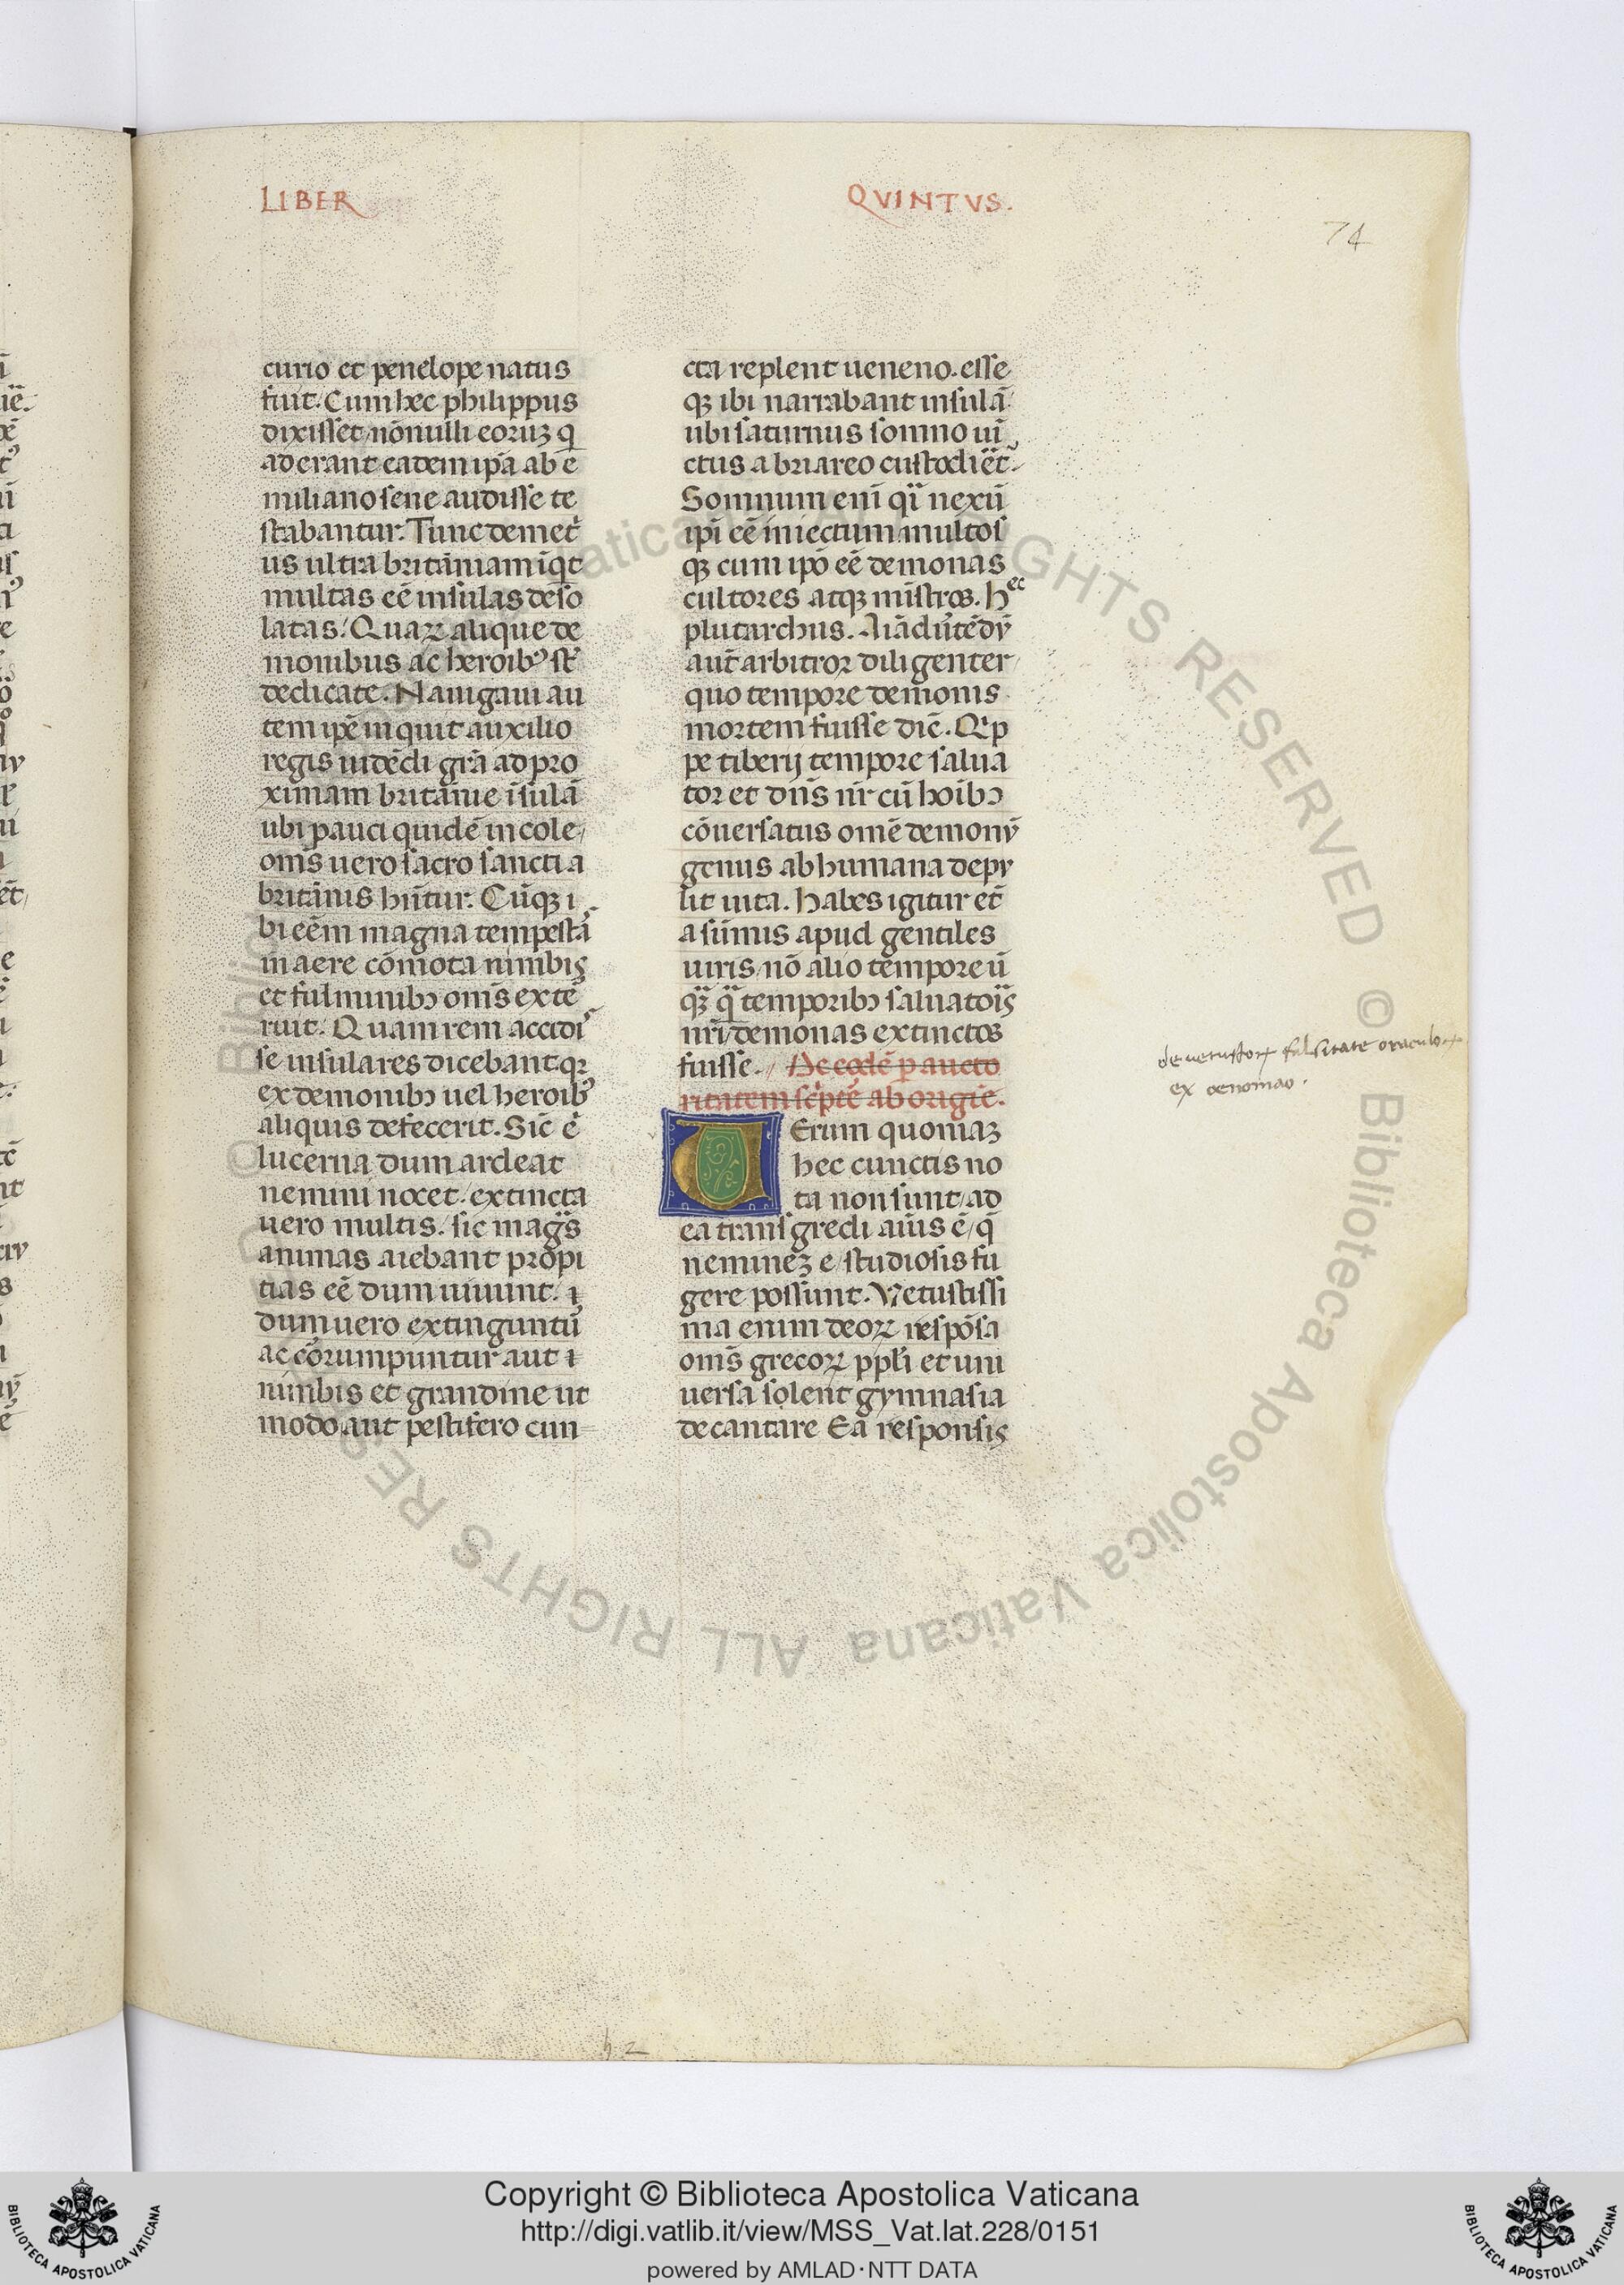 LIBER QVINTVS.
74
curio et penelope natus
fuit. Cum hec philippus
dixisset, nōnulli eoruꝫ q̄
aderant eadem ip̄a ab e
miliano sene audisse te
stabantur. Tunc demet̓
us ultra britāniam iq̓t
multas eē insulas deso
latas. Quaꝝ alique de
monibus ac heroibꝰ st̄
dedicate. Nauigaui au
tem ip̄e inquit auxilio
regis uidēdi grā ad pro
ximam britānie īsulā
ubi pauci quidē incole
om̄s uero sacro sancti a
britānis hn̄tur. Cūqꝫ i
bi eēm magna tempestā
in aere cōmota nimbis
et fulminibꝰ om̄s exte
ruit. Quam rem accidi
se insulares dicebant qꝛ
ex demonibꝰ uel heroibꝰ
aliquis defecerit. Sic ē
lucerna dum ardeat
nemini nocet, extincta
uero multis. sic mag̓s
animas aiebant propi
tias eē dum uiuunt. ⁊
dum uero extinguntū
ac corumpuntur aut ⁊
nimbis et grandine ut
modo aut pestifero cun
cta replent ueneno. esse
qꝫ ibi narrabant insulā
ubi saturnus somno ui
ctus a briareo custodiet̄.
Somnum eni q̓ nexū
ip̄i eē iniectum multos
qꝫ cum ip̄o eē demonas
cultores atqꝫ mīstros. hec
plutarchus. Aīaduertēdū
aut̄ arbitror diligenter
quo tempore demonis
mortem fuisse dic̄. Qip
pe tiberij tempore salua
tor et dn̄s nr̄ cū hoībꝰ
cōuersatus omē demonū
genus ab humana depu
lit uita. Habes igitur et̄
a sūmis apud gentiles
uiris, nō alio tempore ū
qꝫ q̄ temporibꝰ saluatoris
nr̄i demonas extinctos
fuisse. De eodē p aucto
ritatem scpte ab origie.
Uerum quoniaꝫ
hec cunctis no
ta non sunt, ad
ea transgredi aīus ē, q̄
nemineꝫ e studiosis fu
gere possunt. Vetustissi
ma enim deoꝝ respōsa
om̄s grecoꝝ ppl̄i et uni
uersa solent gymnasia
decantare Ea responsis
de uetustoꝝ falsitate oraculoꝝ
ex oenomao.
h 2
© Biblioteca Apostolica Vaticana ALL RIGHTS RESERVED
Copyright © Biblioteca Apostolica Vaticana
http://digi.vatlib.it/view/MSS_Vat.lat.228/0151
powered by AMLAD·NTT DATA
BIBLIOTECA APOSTOLICA VATICANA
BIBLIOTECA APOSTOLICA VATICANA